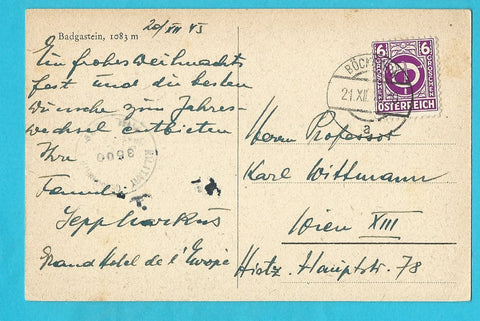 20/XII 45
Badgastein, 1083 m
Ein frohes Weihnachts
fest und die besten
Wünsche zum Jahres-
wechsel entbieten
Ihr
Familie
Sepp Markus
Grand Hotel de l'Europe
BÖCK
21.XII
a
6
6
GROSCHEN
ÖSTERREICH
3600
Herrn Professor
Karl Wittmann
Wien XIII
Hietz. Hauptstr. 78